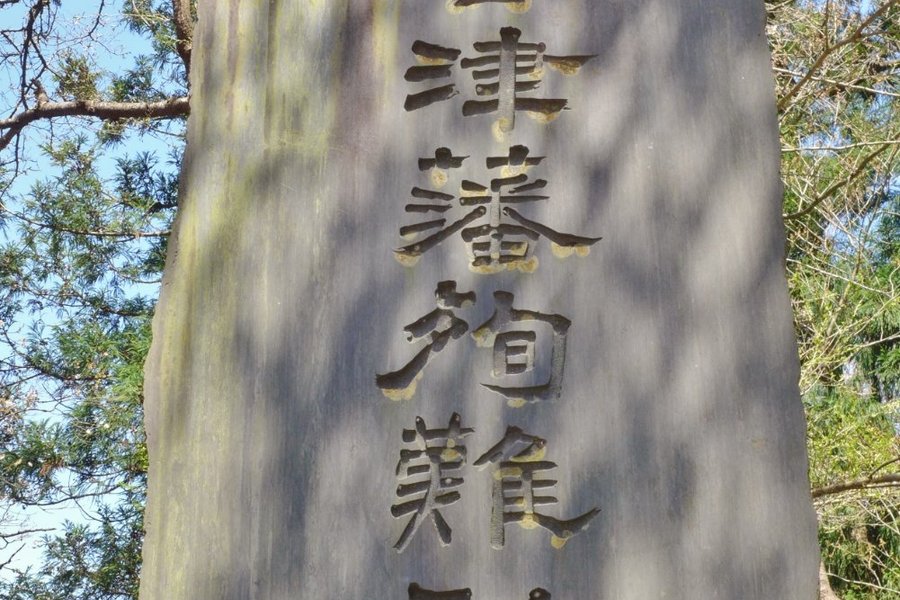 津藩殉難